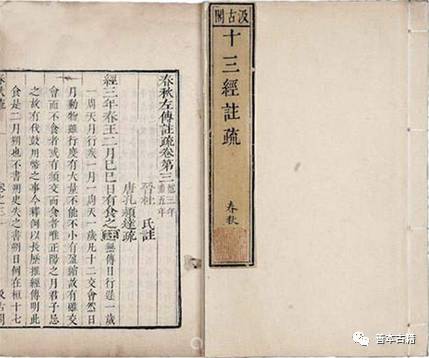 汲古閣
十三經註疏
春秋
春秋左傳註疏卷第三 起三年盡五年
晉杜 氏註
唐孔穎達疏
經三年春王二月己巳日有食之 無傳日行遲一歲
一周天月行疾一月一周天一歲凡十二交會然日
月動物雖行度有大量不能不小有盈縮故有雖交
會而不食者或有頻交而食者唯正陽之月君子忌
之故有伐鼓用幣之事今釋例以長歷推經傳明此
食是二月朔也不書朔史失之書朔日例在桓十七
春秋疏
卷之三
一
汲古閣
善本古籍